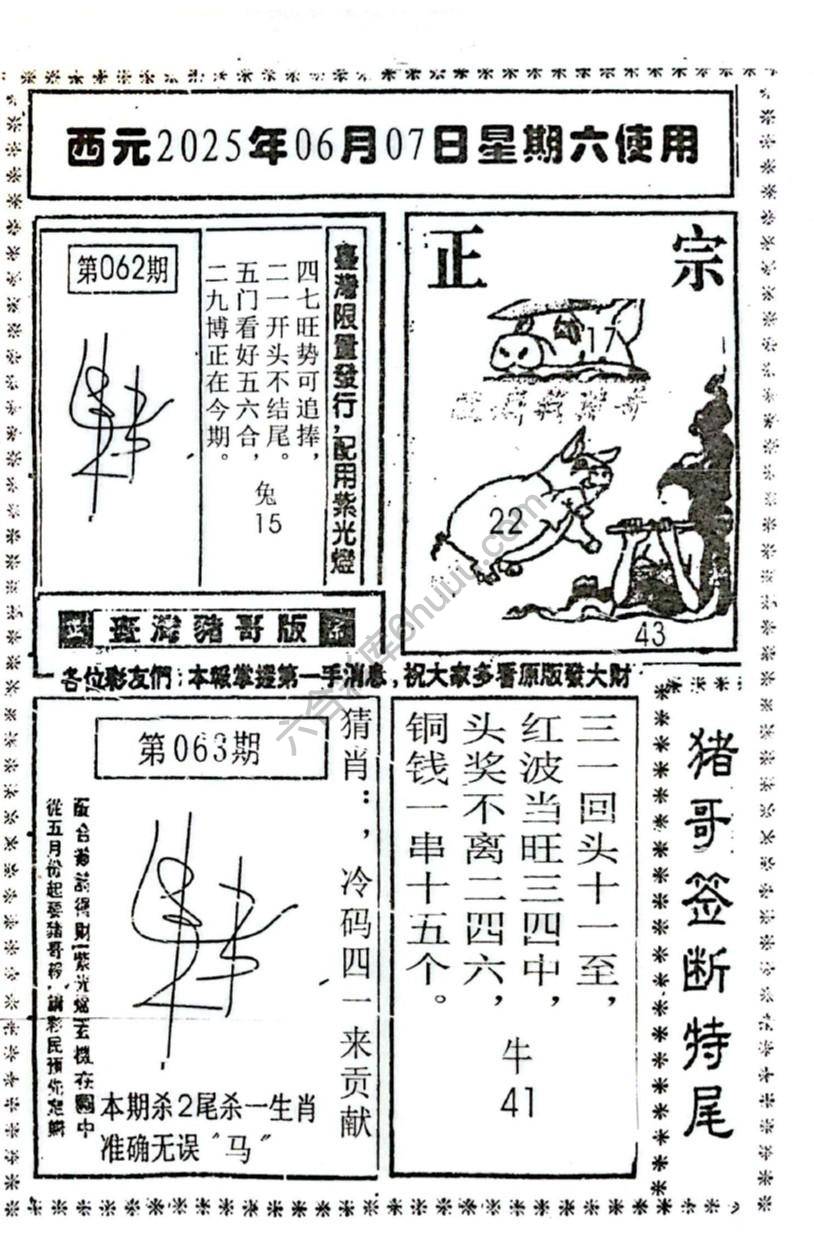 西元2025年06月07日星期六使用
第062期
臺灣限量發行,配用紫光燈
四七旺势可追捧,
二一开头不结尾。
五门看好五六合,
二九博正在今期。
兔
15
正宗
17
22
43
正 臺灣豬哥版 宗
各位彩友們:本報掌握第一手消息,祝大家多看原版發大財
第063期
猜肖:,冷码四一来贡献
從五月份起
本期杀2尾杀一生肖
准确无误"马"
三一回头十一至,
红波当旺三四中,
头奖不离二四六,
铜钱一串十五个。
牛
41
猪哥签断特尾
六合彩库6huuu.com